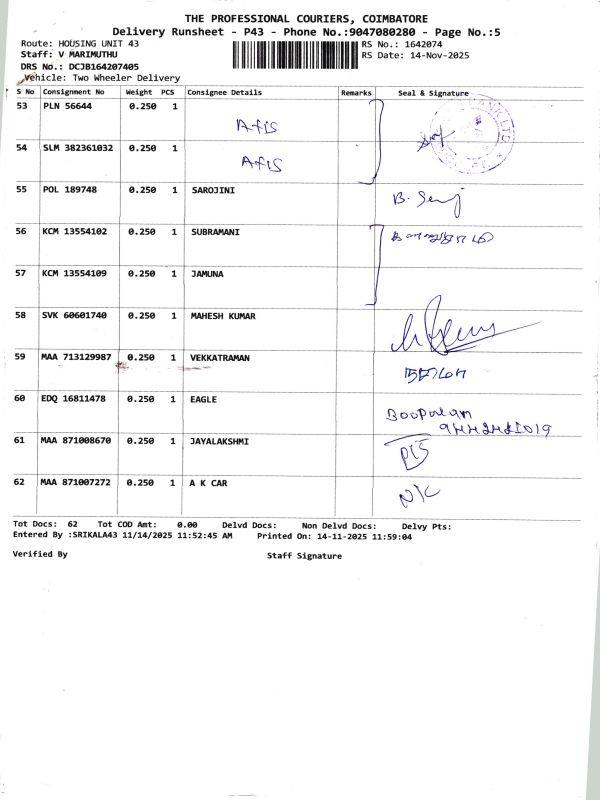 THE PROFESSIONAL COURIERS, COIMBATORE
Delivery Runsheet - P43 - Phone No.:9047080280 - Page No.:5
Route: HOUSING UNIT 43 RS No.: 1642074
Staff: V MARIMUTHU RS Date: 14-Nov-2025
DRS No.: DCJB164207405
Vehicle: Two Wheeler Delivery
S No Consignment No Weight PCS Consignee Details Remarks Seal & Signature
53 PLN 56644 0.250 1
Afis
54 SLM 382361032 0.250 1
Afis
55 POL 189748 0.250 1 SAROJINI
56 KCM 13554102 0.250 1 SUBRAMANI
57 KCM 13554109 0.250 1 JAMUNA
58 SVK 60601740 0.250 1 MAHESH KUMAR
59 MAA 713129987 0.250 1 VEKKATRAMAN
60 EDQ 16811478 0.250 1 EAGLE
61 MAA 871008670 0.250 1 JAYALAKSHMI
62 MAA 871007272 0.250 1 A K CAR
Tot Docs: 62 Tot COD Amt: 0.00 Delvd Docs: Non Delvd Docs: Delvy Pts:
Entered By :SRIKALA43 11/14/2025 11:52:45 AM Printed On: 14-11-2025 11:59:04
Verified By Staff Signature